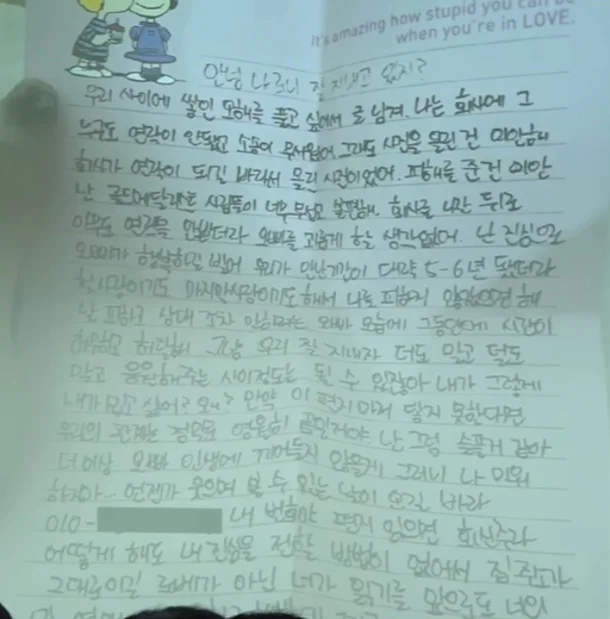 It's amazing how stupid you can be
when you're in LOVE.
안녕 나 론니 잘 지내고 있지?
우리 사이에 쌓인 오해를 풀고 싶어서 글 남겨. 나는 회사에 그
누구도 연락이 안됐고 소송이 무서웠어 그래도 사진을 올린 건 미안해
회사가 연락이 되길 바라서 올린 사진이었어. 피해를 준건 미안
난 골드메달리스트 사람들이 너무 무섭고 불편해. 회사를 나간 뒤로
아무도 연락을 안받더라 오빠를 괴롭게 할 생각없어. 난 진심으로
오빠가 행복하길 빌어 우리가 만난기간이 대략 5-6년 됐더라
첫사랑이기도 마지막사랑이기도 해서 나를 피하지 않았으면 해
난 피하고 상대 조차 안하려는 오빠 모습에 그동안에 시간이
허무하고 허탈해 그냥 우리 잘 지내자 더도 말고 덜도
말고 응원해주는 사이정도는 될 수 있잖아 내가 그렇게
내가 밉고 싫어? 왜? 만약 이 편지마저 닿지 못한다면
우리의 관계는 정말로 영원히 끝일거야 난 그럼 슬플거 같아
더이상 오빠 인생에 끼어들지 않을게 그러니 나 미워
하지마.. 언젠가 웃으며 볼 수 있는 날이 오길 바라
010- 내 번호야 편지 읽으면 회신주라
어떻게 해도 내 진심을 전할 방법이 없어서 집주소가
그대로이길 로베가 아닌 너가 읽기를 앞으로도 너의